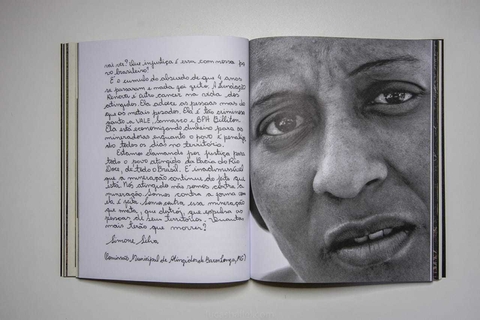 vai ver? Que injustiça é essa com nosso po
vo brasileiro?
É o cúmulo do absurdo de que 4 anos
se passaram e nada foi feito. A Fundação
Renova é outro cancer na vida dos
atingidos. Ela adoece as pessoas mais do
que os metais pesados. Ela é tão criminosa
quanto a VALE, Samarco e BPH Billiton.
Ela está economizando dinheiro para as
mineradoras enquanto o povo é penaliza
do todos os dias no território.
Estamos clamando por justiça para
todo o povo atingido da Bacia do Rio
Doce, de todo o Brasil. É inadmissível
que a mineração continue do jeito que
está. Nós atingidos não somos contra a
mineração. Somos contra a forma como
ela é feita. Somos contra essa mineração
que mata, que destrói, que expulsa as
pessoas de seus territórios. Quantos
mais terão que morrer?
Simone Silva
(Comissão Municipal de Atingidos de Barra Longa, MG)